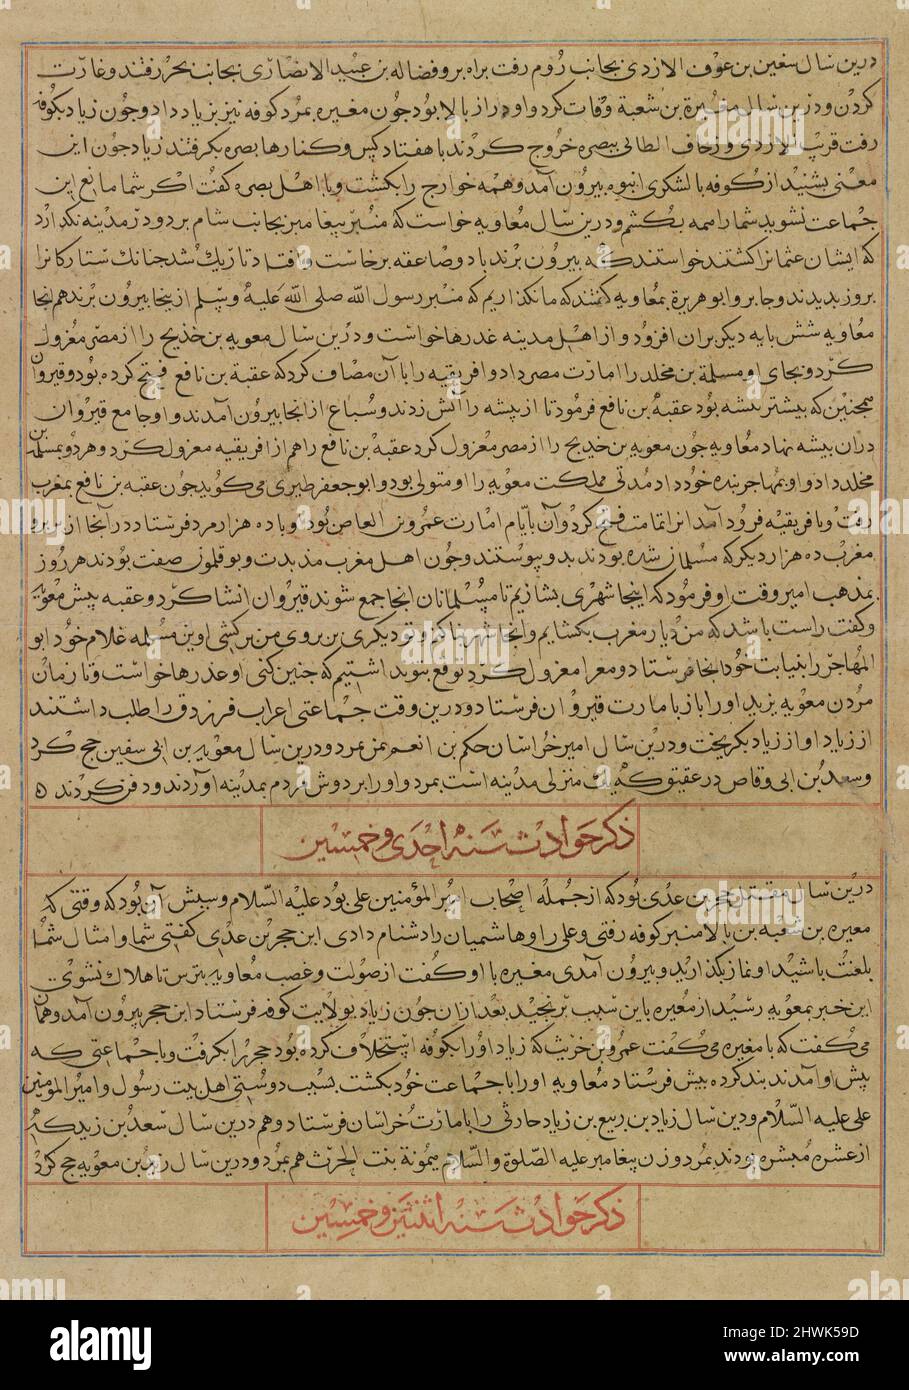 درین سال سفین بن عوف الازدی بجانب روم رفت براه بر و فضاله بن عبید الانصاری بجانب بحر رفتند و غارت
کردن و درین سال مغیرة بن شعبة وفات کرد و او دراز بالا بود جون مغیره بمرد کوفه نیز بزیاد داد و جون زیاد بکوفه
رفت قریب الازدی و زحاف الطائی ببصره خروج کردند با هفتاد کس و کنارها بصره بکرفتند زیاد جون این
معنی بشنید از کوفه با لشکری انبوه بیرون آمد و همه خوارج را بکشت و با اهل بصره کفت اکر شما مانع این
جماعت نشوید شما را همه بکشم و درین سال معاویه خواست که منبر پیغامبر بجانب شام برد و در مدینه نکذارد
که ایشان عثمانرا کشتند خواستند که بیرون برند باد و صاعقه برخاست و افتاد تاریک شد جنانک ستارکانرا
بروز بدیدند و جابر و ابو هریرة بمعاویه کفتند که ما نکذاریم که منبر رسول الله صلی الله علیه وسلم از ینجا بیرون برند هم انجا
معاویه شش پایه دیکر بران افزود و از اهل مدینه عذرها خواست و درین سال معویه بن خدیج را از مصر معزول
کرد و بجای او مسلمة بن مخلد را امارت مصر داد و افریقیه را با آن مضاف کرد که عقبة بن نافع فتح کرده بود و قیروان
همجنین که بیشتر بیشه بود عقبة بن نافع فرمود تا از بیشه را آتش زدند و سباع از انجا بیرون آمدند و او جامع قیروان
دران بیشه نهاد معاویه جون معویه بن خدیج را از مصر معزول کرد عقبة بن نافع را هم از افریقیه معزول کرد و هر دو بمسلمة بن
مخلد داد و او بمهاجر بنده خود داد مدتی مملکت معویه را او متولی بود و ابو جعفر طبری می کوید جون عقبه بن نافع بمغرب
رفت و بافریقیه فرود آمد انرا اقامت فتح کرد و آن بایام امارت عمرو بن العاص بود و با ده هزار مرد فرستاد در آنجا از بربر و
مغرب ده هزار دیکر که مسلمان شده بودند بدو پیوستند و جون اهل مغرب مذبذب و بوقلمون صفت بودند هر روز
بمذهب امیر وقت او فرمود که اینجا شهری بسازیم تا مسلمانان انجا جمع شوند قیروان انشا کرد و عقبه پیش معویه
و کفت راست باشد که من دیار مغرب بکشایم و انجا شهر بنا کنم و تو دیکری بن بروی من برکشی او بن مسلمه غلام خود ابو
المهاجر را بنیابت خود انجا فرستاد و مرا معزول کرد توقع بتو بد اشتیم که جنین کنی او عذرها خواست و تا زمان
مردن معویه یزید او را باز بامارت قیروان فرستاد و درین وقت جماعتی اعراب فرزدق را طلب داشتند
از زیاد او از زیاد بکریخت و درین سال امیر خراسان حکم بن انعم بمرو بمرد و درین سال معویه بن ابی سفین حج کرد
و سعد بن ابی وقاص در عقیق که یک منزلی مدینه است بمرد و او را بر دوش مردم بمدینه اوردند و دفن کردند ه
ذکر حوادث سنه احدی و خمسین
درین سال مقتل حجر بن عدی بود که از جملهٔ اصحاب امیر المؤمنین علی بود علیه السلام و سبش آن بود که وقتی که
مغیره بن شعبة بن بالا منبر کوفه رفتی و علی را و هاشمیان را دشنام دادی ابن حجر بن عدی کفتی شما و امثال شما
بلعنت باشید او نماز بکذاردی و بیرون آمدی مغیره با او کفت از صولت و غضب معاویه بترس تا هلاک نشوی
این خبر بمعویه رسید از مغیره باین سبب برنجید بعد ازان جون زیاد بولایت کوفه فرستاد ابن حجر بیرون آمد و همان
می کفت که با مغیره می کفت عمرو بن حریث که زیاد او را بکوفه استخلاف کرده بود حجر را بکرفت و با جماعتی که
پیش او آمدند بند کرده پیش فرستاد معاویه او را با جماعت خود بکشت بسبب دوستی اهل بیت رسول و امیر المؤمنین
علی علیه السلام و دین سال زیاد بن ربیع بن زیاد حارثی را بامارت خراسان فرستاد و هم درین سال سعد بن زید که
از عشره مبشره بودند بمرد و زن پیغامبر علیه الصلوة والسلام میمونة بنت الحرث هم بمرد و درین سال یزید بن معویه حج کرد
ذکر حوادث سنه اثنتین و خمسین
alamy
Image ID: 2HWK59D
www.alamy.com